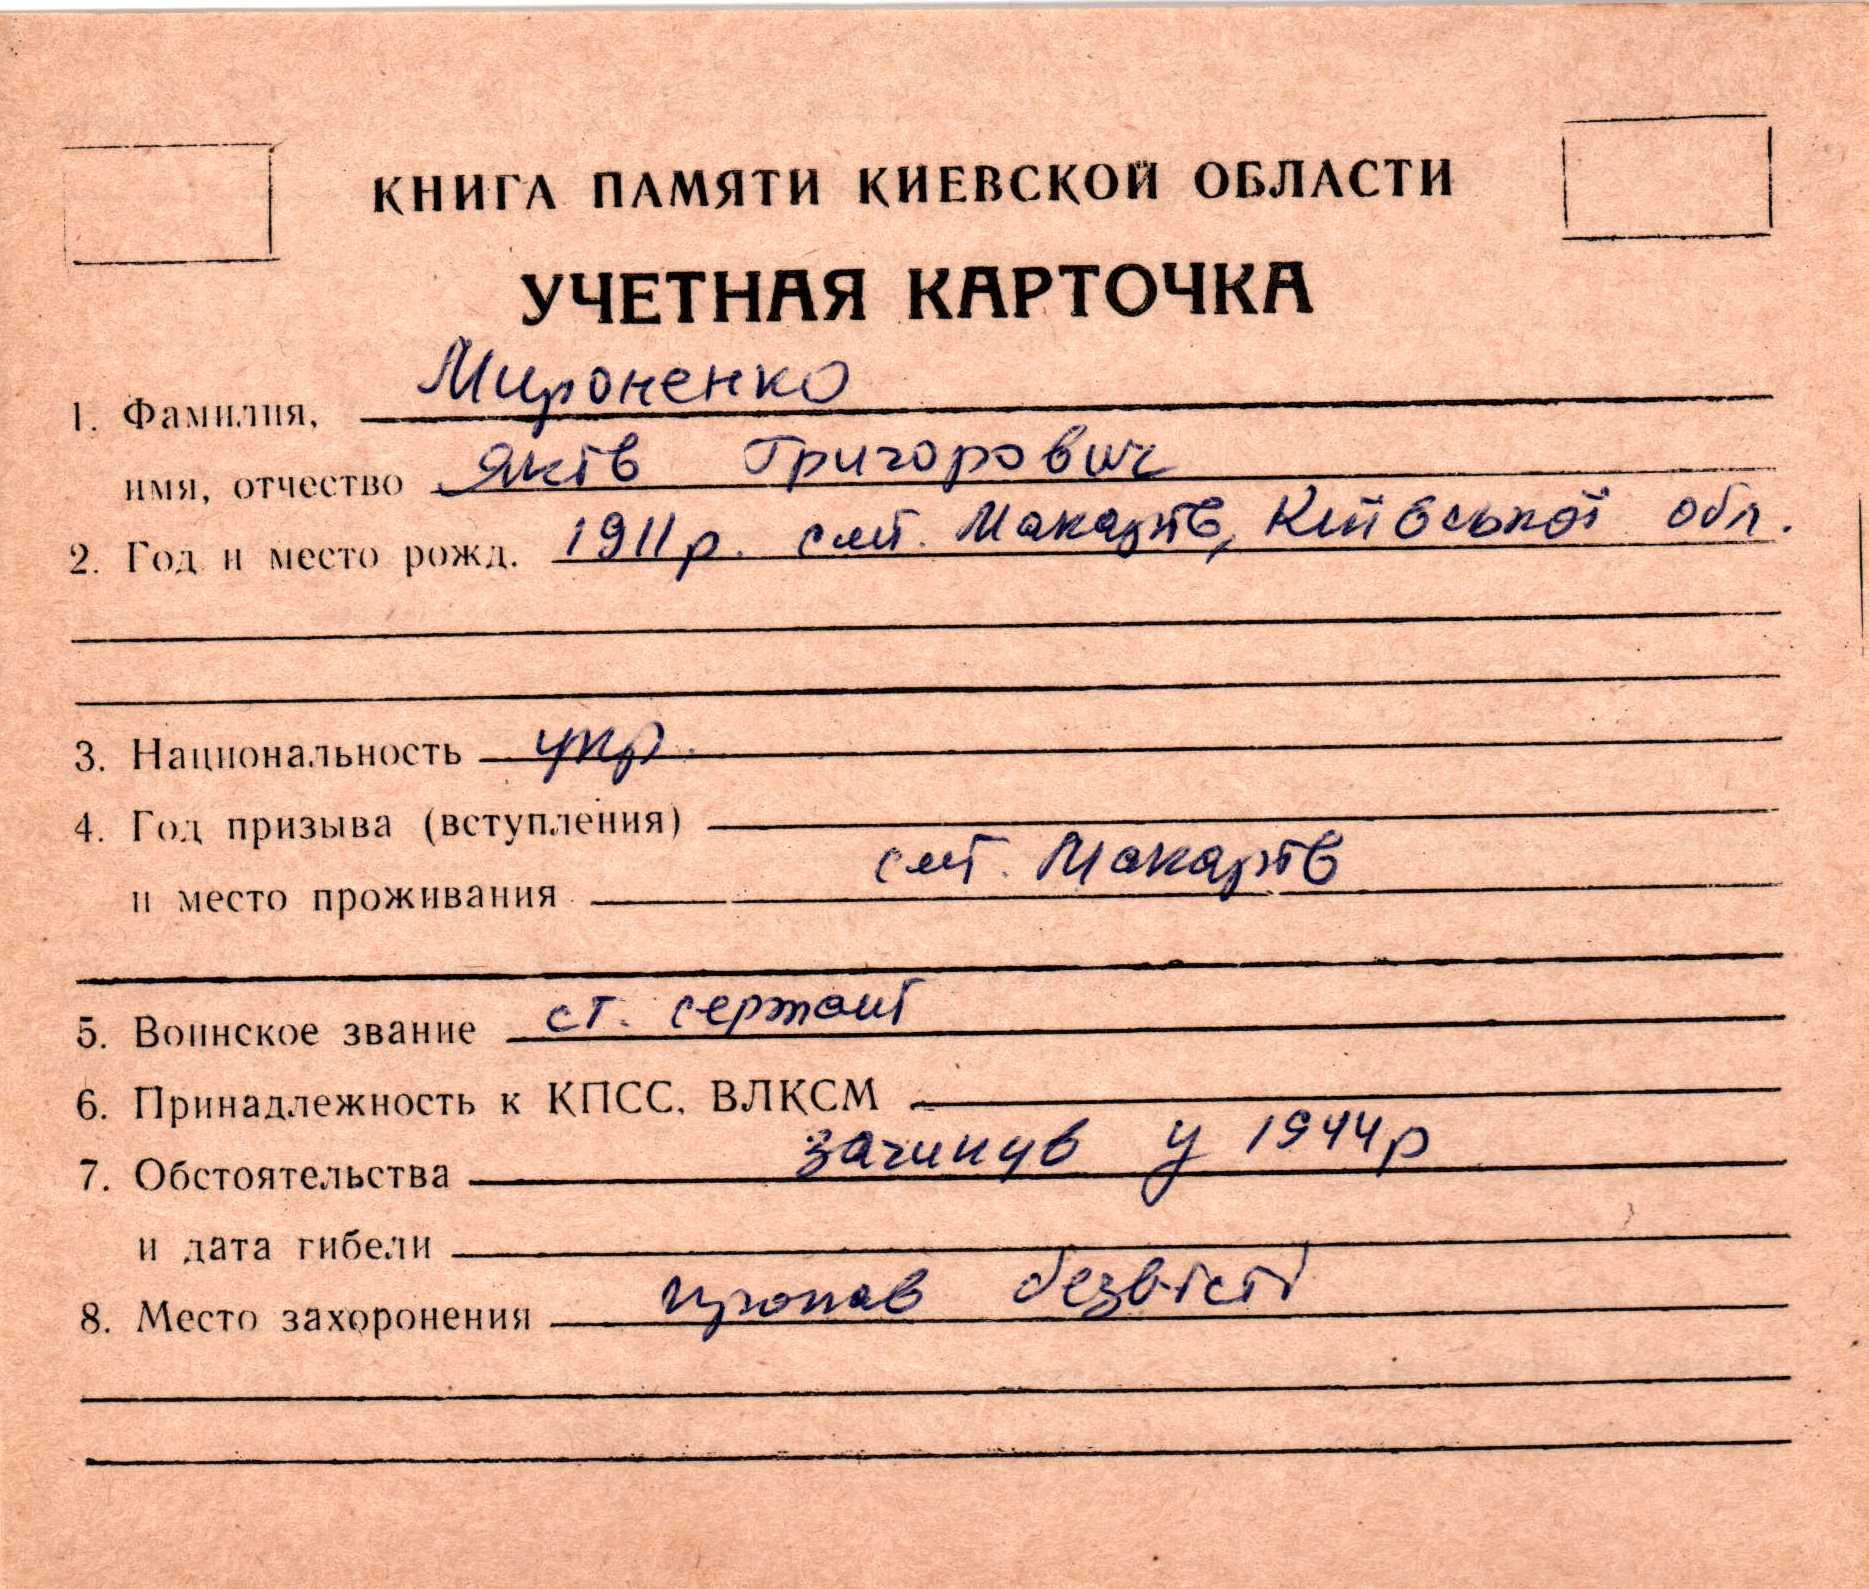 КНИГА ПАМЯТИ КИЕВСКОЙ ОБЛАСТИ
УЧЕТНАЯ КАРТОЧКА
1. Фамилия, Мироненко
имя, отчество Яків Григорович
2. Год и место рожд. 1911р. смт. Макарів, Київської обл.
3. Национальность укр.
4. Год призыва (вступления)
и место проживания смт. Макарів
5. Воинское звание ст. сержант
6. Принадлежность к КПСС, ВЛКСМ
7. Обстоятельства загинув у 1944р
и дата гибели
8. Место захоронения пропав безвісті